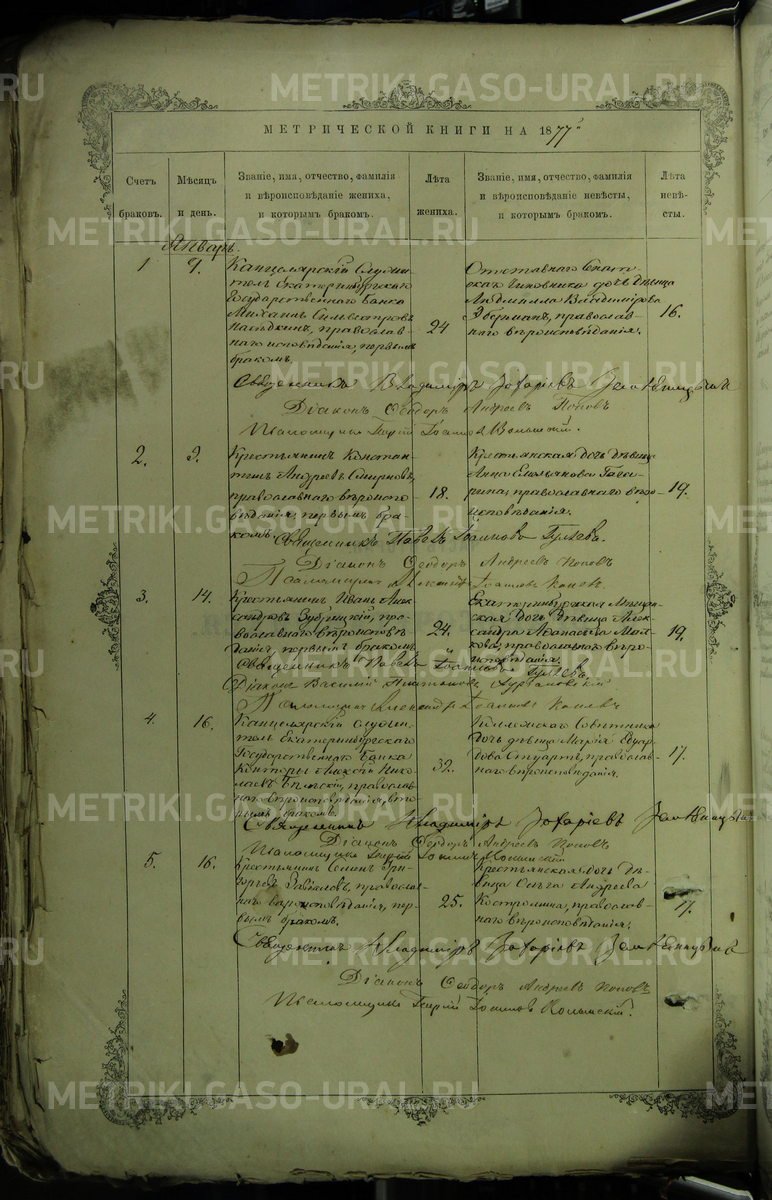 METRIKI.GASO-URAL.RU
МЕТРИЧЕСКОЙ КНИГИ НА 1877
Счетъ браковъ.
Мѣсяцъ и день.
Званіе, имя, отчество, фамилія
и вѣроисповѣданіе жениха,
и которымъ бракомъ.
Лѣта жениха.
Званіе, имя, отчество, фамилія
и вѣроисповѣданіе невѣсты,
и которымъ бракомъ.
Лѣта невѣ-
сты.
Январь.
1
9.
Канцелярскій Служи-
тель Екатеринбургскаго
Государственнаго Банка
Михаилъ Сильвестровъ
православ-
наго исповѣданія, первымъ
бракомъ.
24
Отставнаго
Чиновника дочь дѣвица
Людмилла Владимірова
православ-
наго вѣроисповѣданія.
16.
Священникъ Владиміръ Захаріевъ Земляницынъ
Діаконъ Ѳеодоръ Андреевъ Поповъ
Псаломщикъ Георгій Іоанновъ
2.
9.
Крестьянинъ Констан-
тинъ Андреевъ Смирновъ,
православнаго вѣроиспо-
вѣданія, первымъ бра-
комъ.
18.
Крестьянская дочь дѣвица
Анна Емельянова Гага-
рина, православнаго вѣро-
исповѣданія.
19.
Священникъ Павелъ Іоанновъ Гуляевъ.
Діаконъ Ѳеодоръ Андреевъ Поповъ
Псаломщикъ Александръ Іоанновъ
3.
14.
Крестьянинъ Иванъ Алек-
сандровъ Зубрицкій, пра-
вославнаго вѣроисповѣ-
данія, первымъ бракомъ.
24.
Екатеринбургская Мѣщан-
ская дочь дѣвица Алек-
сандра Аѳанасьева
православнаго вѣро-
исповѣданія.
19.
Священникъ Павелъ Іоанновъ Гуляевъ
Діаконъ Василій
Псаломщикъ Александръ Іоанновъ
4.
16.
Канцелярскій Служи-
тель Екатеринбургскаго
Государственнаго Банка
Конторы Алексѣй Нико-
лаевъ православ-
наго вѣроисповѣданія, вто-
рымъ бракомъ.
32.
Коллежскаго Совѣтника
дочь дѣвица Марія Эдуар-
дова Стуартъ, православ-
наго вѣроисповѣданія.
17.
Священникъ Владиміръ Захаріевъ Земляницынъ
Діаконъ Ѳеодоръ Андреевъ Поповъ
Псаломщикъ Георгій Іоанновъ
5.
16.
Крестьянинъ Семенъ Гри-
горьевъ православ-
наго вѣроисповѣданія, пер-
вымъ бракомъ.
25.
Крестьянская дочь дѣ-
вица Ольга Андреева
Костромина, православ-
наго вѣроисповѣданія.
17.
Священникъ Владиміръ Захаріевъ Земляницынъ
Діаконъ Ѳеодоръ Андреевъ Поповъ
Псаломщикъ Георгій Іоанновъ